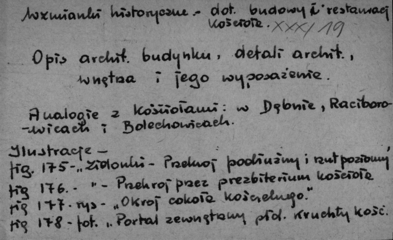 Wzmianki historyczne - dot. budowy i restauracji
kościoła. XXX/19
Opis archit. budynku, detali archit.,
wnętrza i jego wyposażenie.
Analogie z kościołami: w Dębnie, Raciboro-
-wicach i Bolechowicach.
Ilustracje -
fig. 175 - "Zielonki - Przekrój podłużny i rzut poziomy"
fig 176. - " - Przekrój przez prezbiterium kościoła
fig 177. rys - "Okrój cokołu kościelnego."
fig 178 - fot. "Portal zewnętrzny płd. kruchty kość.